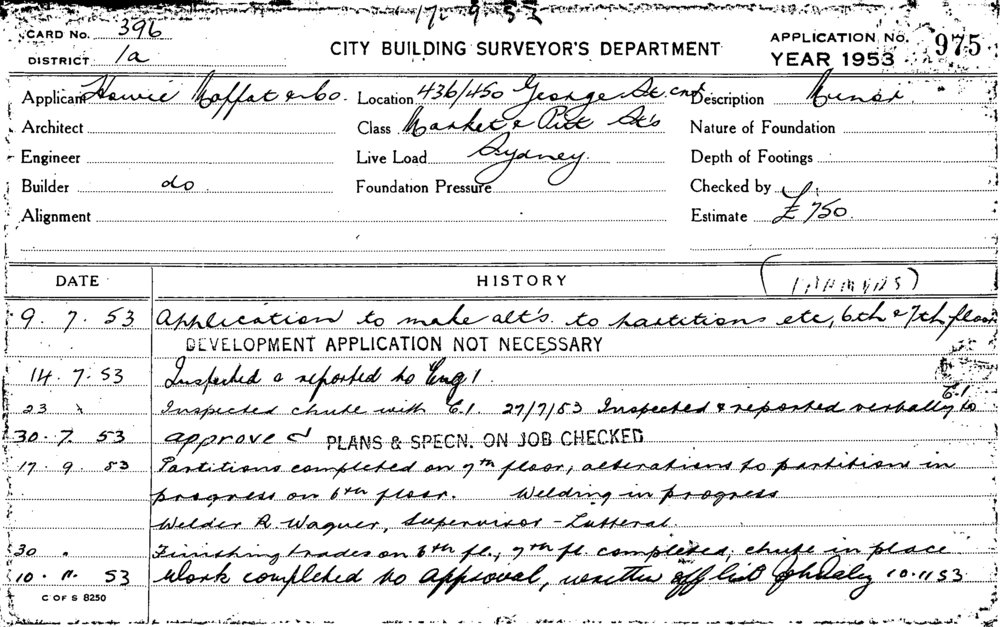 17. 9. 53
CARD No. 396
DISTRICT 1a
CITY BUILDING SURVEYOR'S DEPARTMENT
APPLICATION No. 975
YEAR 1953
Applicant Howie Moffat & Co. Location 436/450 George St. and Description Minor
Architect Class Market & Pitt St's Nature of Foundation
Engineer Live Load Sydney. Depth of Footings
Builder do Foundation Pressure Checked by
Alignment Estimate £750
DATE HISTORY
9. 7. 53 Application to make alt's. to partitions etc, 6th & 7th floor
DEVELOPMENT APPLICATION NOT NECESSARY
14. 7. 53 Inspected & reported to Eng 1.
23 Inspected chute with E.1. 27/7/53 Inspected & reported verbally to E.1
30. 7. 53 approved PLANS & SPECN. ON JOB CHECKED
17. 9. 53 Partitions completed on 7th floor, alterations to partitions in
progress on 6th floor. Welding in progress
Welder R. Wagner, Supervisor - Lutteral.
30 " Finishing trades on 6th fl., 7th fl completed, chute in place
10. 11. 53 Work completed to approval, written off list 10.11.53
C OF S 8250